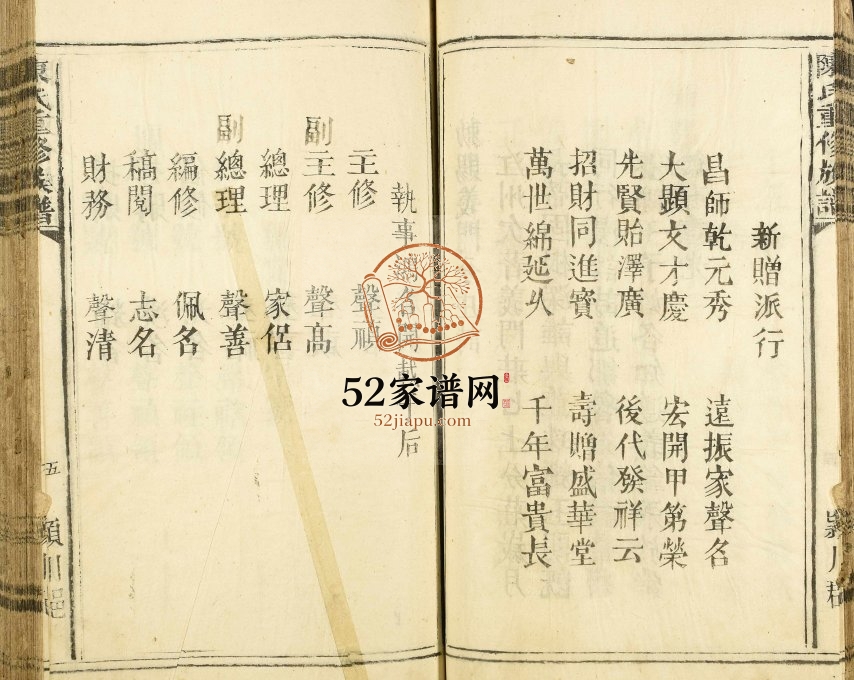 陳氏重修族譜
新贈派行
昌師乾元秀 遠振家聲名
大顕文才慶 宏開甲第榮
先賢貽澤廣 後代發祥云
招財同進寶 壽贈盛華堂
萬世綿延久 千年富貴長
執事 台 開載 后
主修 聲
副主修 聲高
總理 家侶
副總理 聲善
編修 佩名
稿閲 志名
財務 聲清
陳氏重修族譜
五
潁川
52家谱网
52jiapu.com